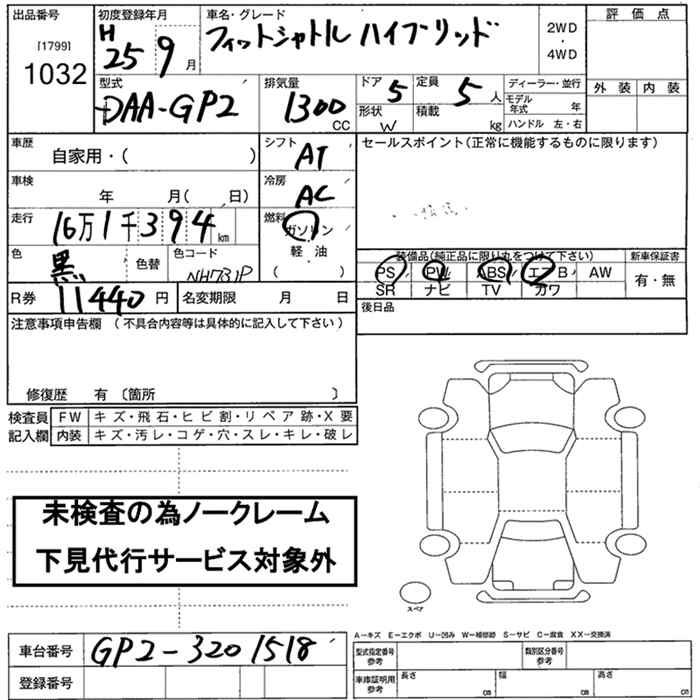 出品番号 初度登録年月 車名・グレード 評価点
[1799]
1032
H 25 9 月
フィットシャトル ハイブリッド
2WD
・
4WD
外装 内装
型式 排気量 ドア 定員 ディーラー・並行
DAA-GP2 1300 CC 5 5 人
モデル年式 年
形状 W 積載 kg ハンドル 左・右
車歴 シフト セールスポイント(正常に機能するものに限ります)
自家用・( ) AT
車検 冷房
年 月( 日) AC
走行 燃料
16万1千394km ガソリン
軽・油
( )
色 色替 色コード
黒 NH731P
装備品(純正品に限り丸をつけて下さい) 新車保証書
PS PW ABS エアB AW 有・無
SR ナビ TV カワ
R券 11440円 名変期限 月 日
後日品
注意事項申告欄 (不具合内容等は具体的に記入して下さい)
修復歴 有 〔箇所 〕
検査員 FW キズ・飛石・ヒビ割・リペア跡・X要
記入欄 内装 キズ・汚レ・コゲ・穴・スレ・キレ・破レ
未検査の為ノークレーム
下見代行サービス対象外
スペア
A−キズ E−エクボ U−凹み W−補修跡 S−サビ C−腐食 XX−交換済
車台番号 GP2-3201518
登録番号
型式指定番号 参考 類別区分番号 参考
車庫証明用 参考 長さ cm 幅 cm 高さ cm